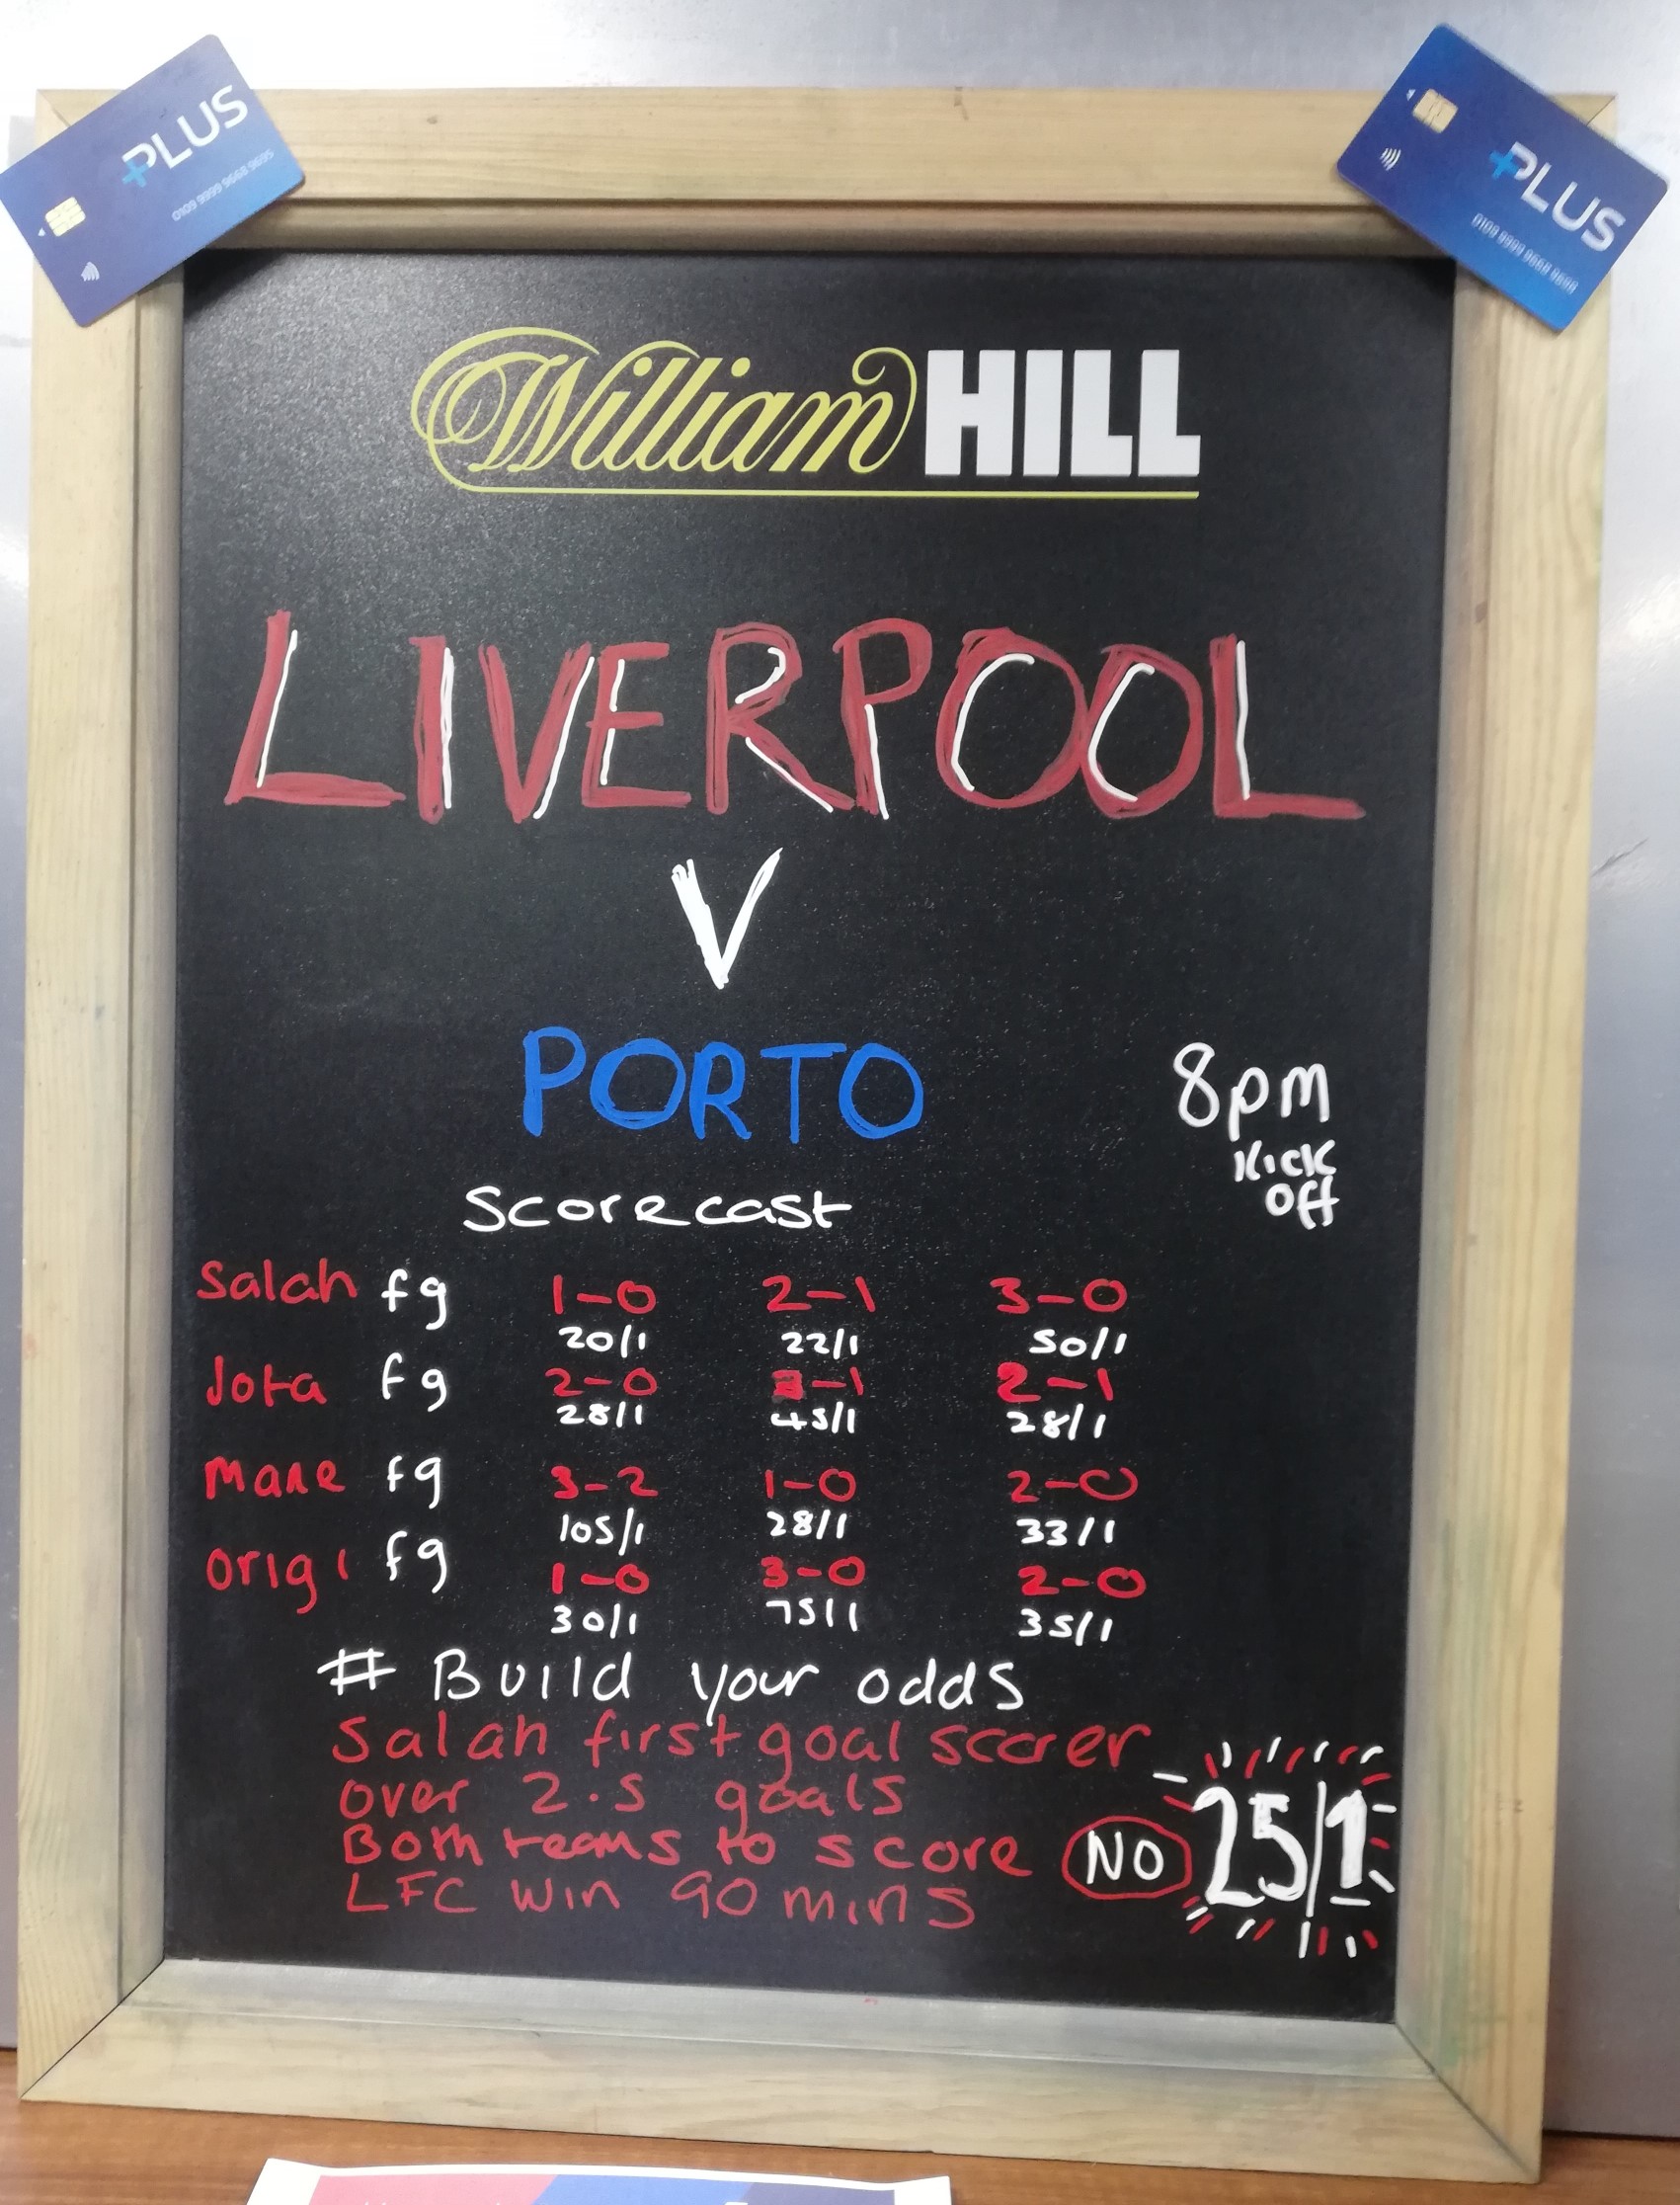 PLUS
0109 9999 9668 9695
PLUS
0109 9999 9668 9698
William HILL
LIVERPOOL
V
PORTO
8pm
Kick
Off
Scorecast
Salah fg 1-0 2-1 3-0
20/1 22/1 50/1
Jota fg 2-0 3-1 2-1
28/1 45/1 28/1
Mane fg 3-2 1-0 2-0
105/1 28/1 33/1
Origi fg 1-0 3-0 2-0
30/1 75/1 35/1
# Build your odds
Salah first goal scorer
over 2.5 goals
Both teams to score NO 25/1
LFC win 90 mins